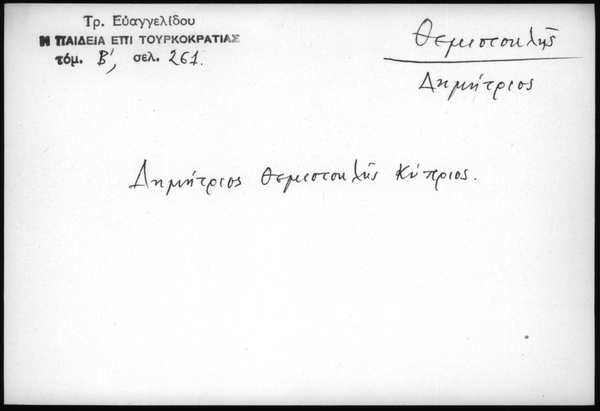 Τρ. Εὐαγγελίδου
Η ΠΑΙΔΕΙΑ ΕΠΙ ΤΟΥΡΚΟΚΡΑΤΙΑΣ
τόμ. Β', σελ. 261.
Θεμιστοκλῆς
Δημήτριος
Δημήτριος Θεμιστοκλῆς Κύπριος.